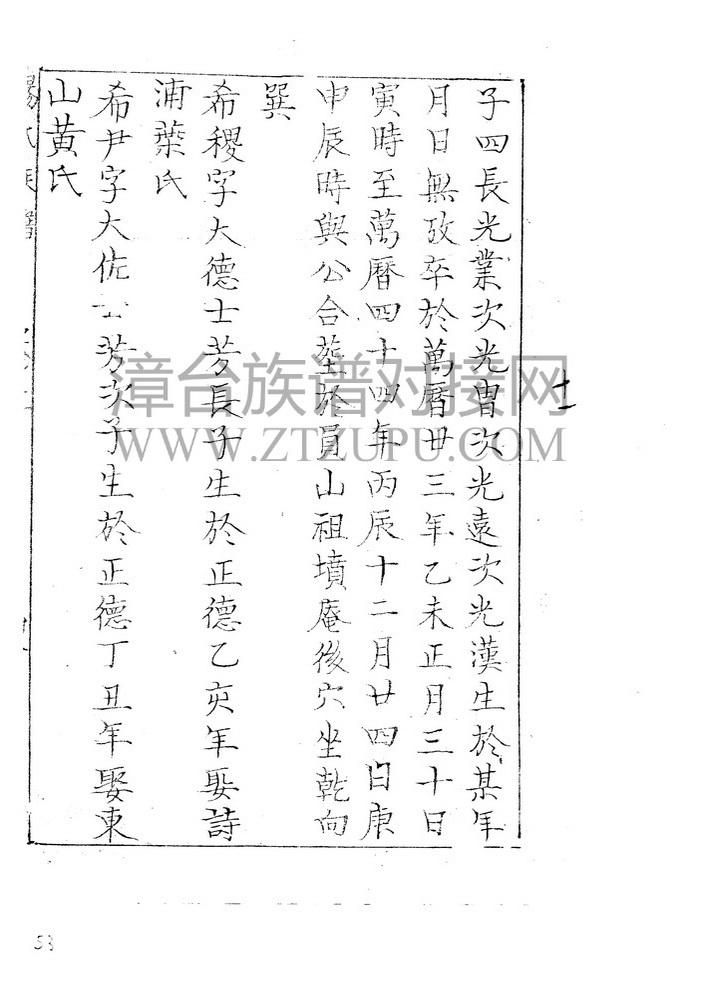 子四長光業次光曽次光遠次光漢生於某年
月日無攷卒於萬曆廿三年乙未正月三十日
寅時至萬曆四十四年丙辰十二月廿四日庚
申辰時與公合塟於員山祖墳庵後穴坐乾向
巽
希稷字大德士芳長子生於正德乙亥年娶詩
浦葉氏
希尹字大佐士芳次子生於正德丁丑年娶東
山黃氏
土
漳台族谱对接网
WWW.ZTZUPU.COM
53